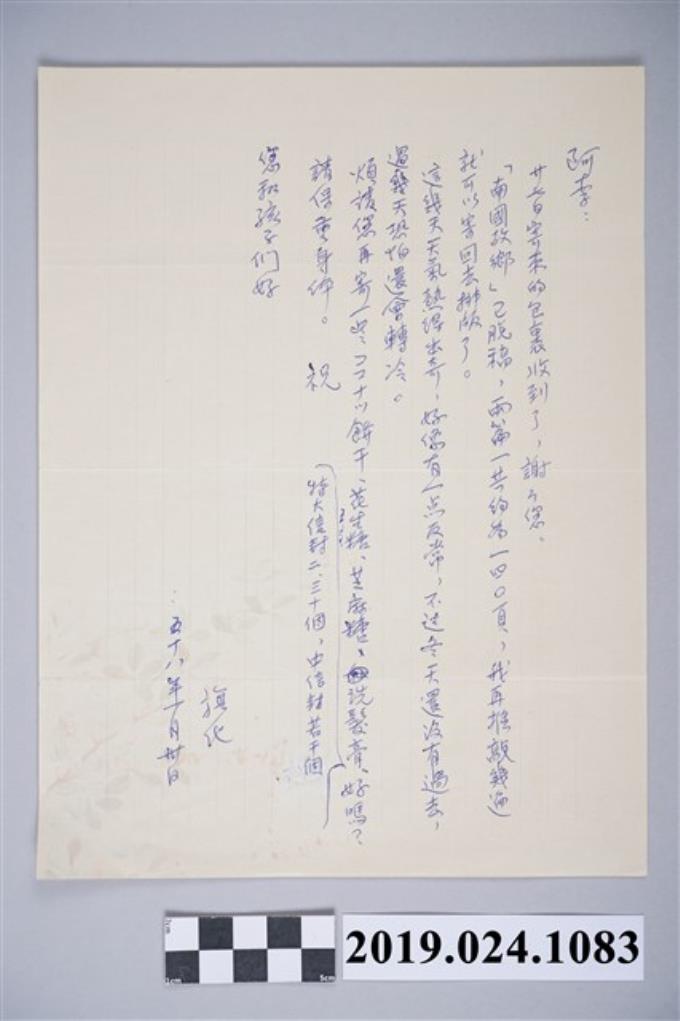 阿李:
廿七日寄來的包裹收到了,謝々您。
「南國故鄉」已脫稿,兩篇一共約為一四〇頁,我再推敲幾遍
就可以寄回去排版了。
這幾天天氣熱得出奇,好像有一点反常,不过冬天還沒有過去,
過幾天恐怕還會轉冷。
煩請您再寄一些ココナツ餅干、花生糖、芝麻糖、洗髮膏、好嗎?
特大信封二、三十個,中信封若干個
請保重身体。 祝
您和孩子们好
旗化
五十八年一月卅日
2cm
1cm
5cm
2019.024.1083